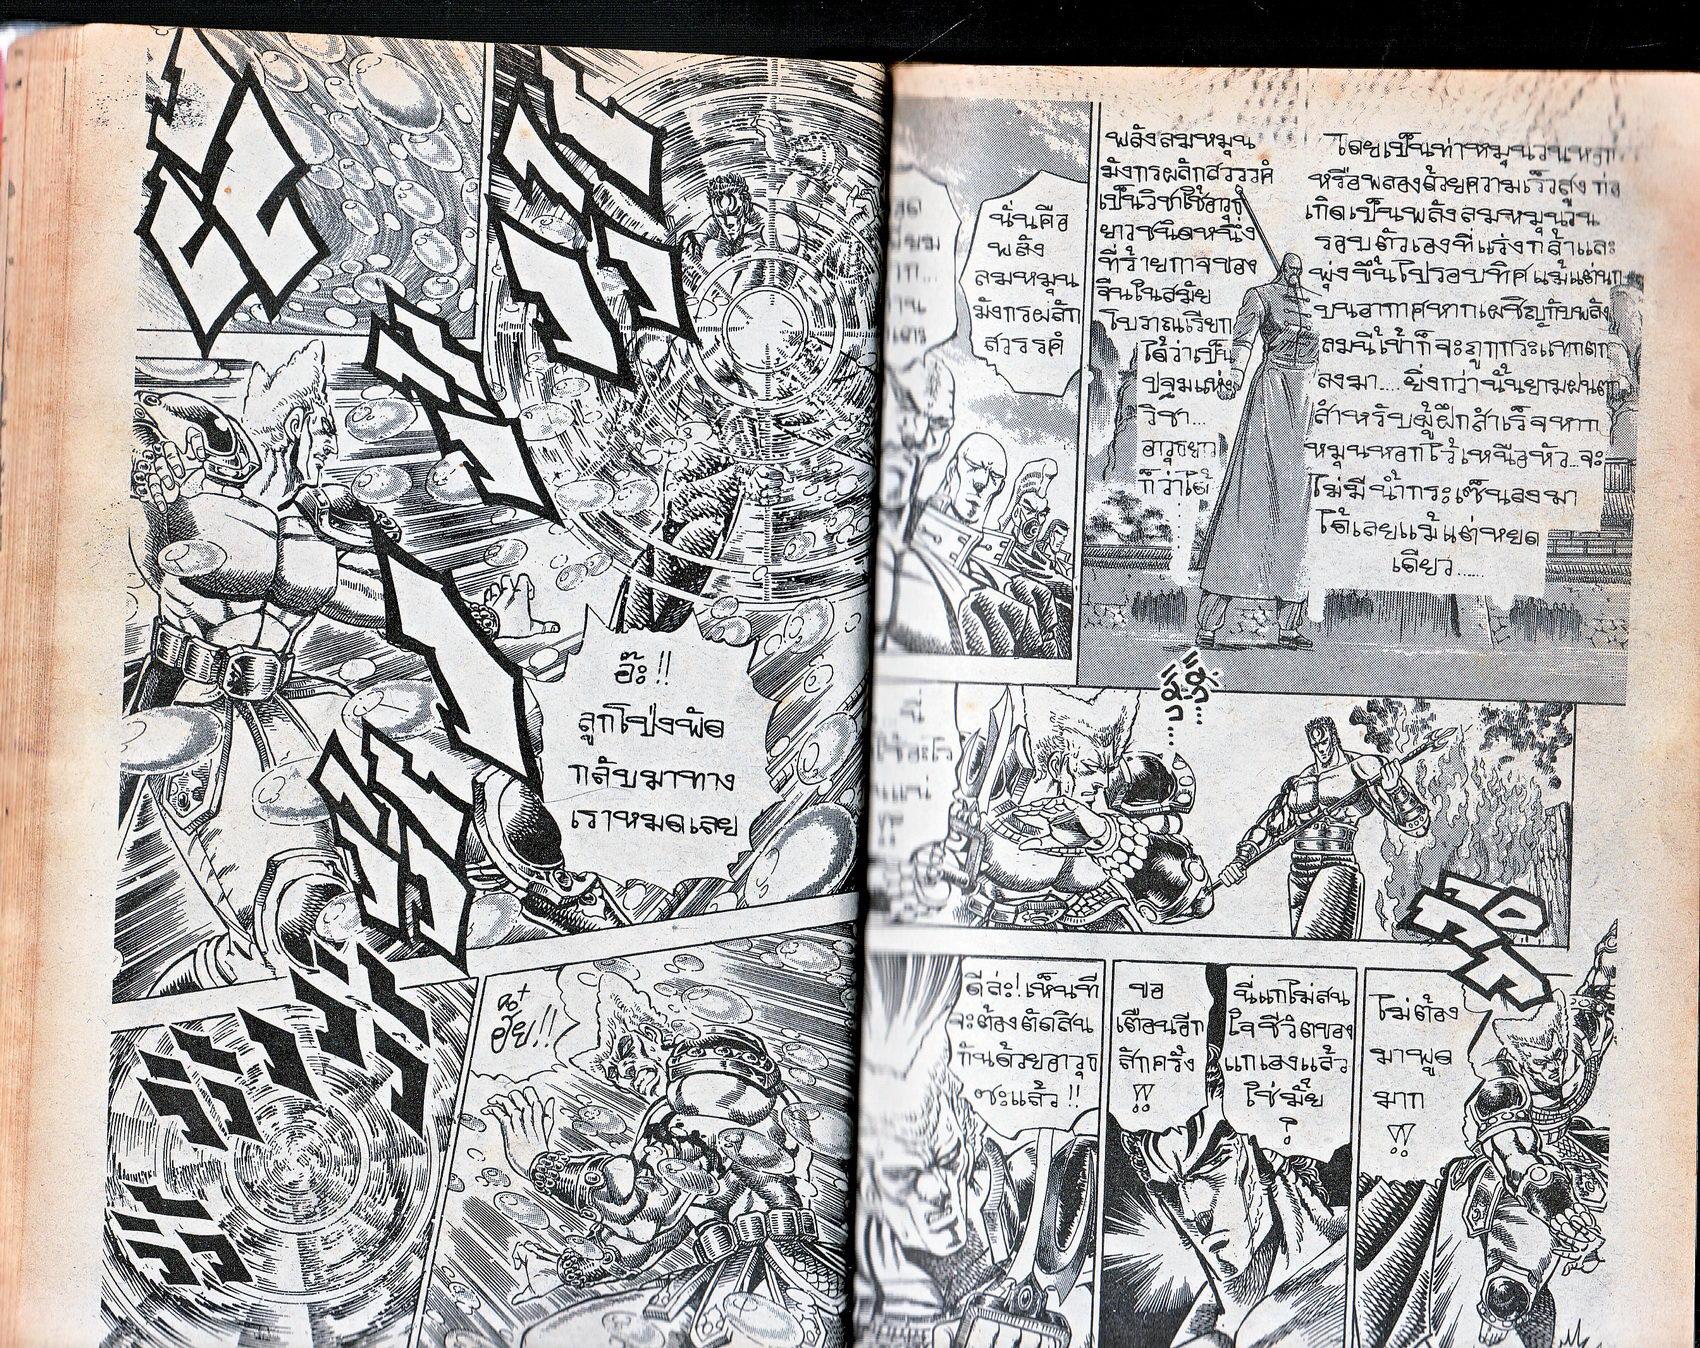 อ๊ะ!!
ลูกโป่งพัด
กลับมาทาง
เราหมดเลย
อุ๊ย!!
นั่นคือ
พลัง
ลมหมุน
มังกรผลัก
สวรรค์
พลังลมหมุน
มังกรผลักสวรรค์
เป็นวิชาใช้อาวุธ
ยาวชนิดหนึ่ง
ที่ร้ายกาจของ
จีนในสมัย
โบราณเรียก
ได้ว่าเป็น
ปฐมแห่ง
วิชา...
อาวุธยาว
ก็ว่าได้
โดยเป็นท่าหมุนวนหอก
หรือพลองด้วยความเร็วสูง ก่อ
เกิดเป็นพลังลมหมุนวน
รอบตัวเองที่แรงกล้าและ
พุ่งขึ้นไปรอบทิศ แม้แต่นก
บนอากาศหากเผชิญกับพลัง
ลมนี้เข้าก็จะถูกกระแทกตก
ลงมา.... ยิ่งกว่านั้นยามฝนตก
สำหรับผู้ฝึกสำเร็จหาก
หมุนหอกไว้เหนือหัว...จะ
ไม่มีน้ำกระเซ็นลงมา
ได้เลยแม้แต่หยด
เดียว......
ไม่ต้อง
มาพูด
มาก
!!
นี่แกไม่สน
ใจชีวิตของ
แกเองแล้ว
ใช่มั้ย
?
ขอ
เตือนอีก
สักครั้ง
!!
ดีล่ะ! เห็นที
จะต้องตัดสิน
กันด้วยอาวุธ
ซะแล้ว!!